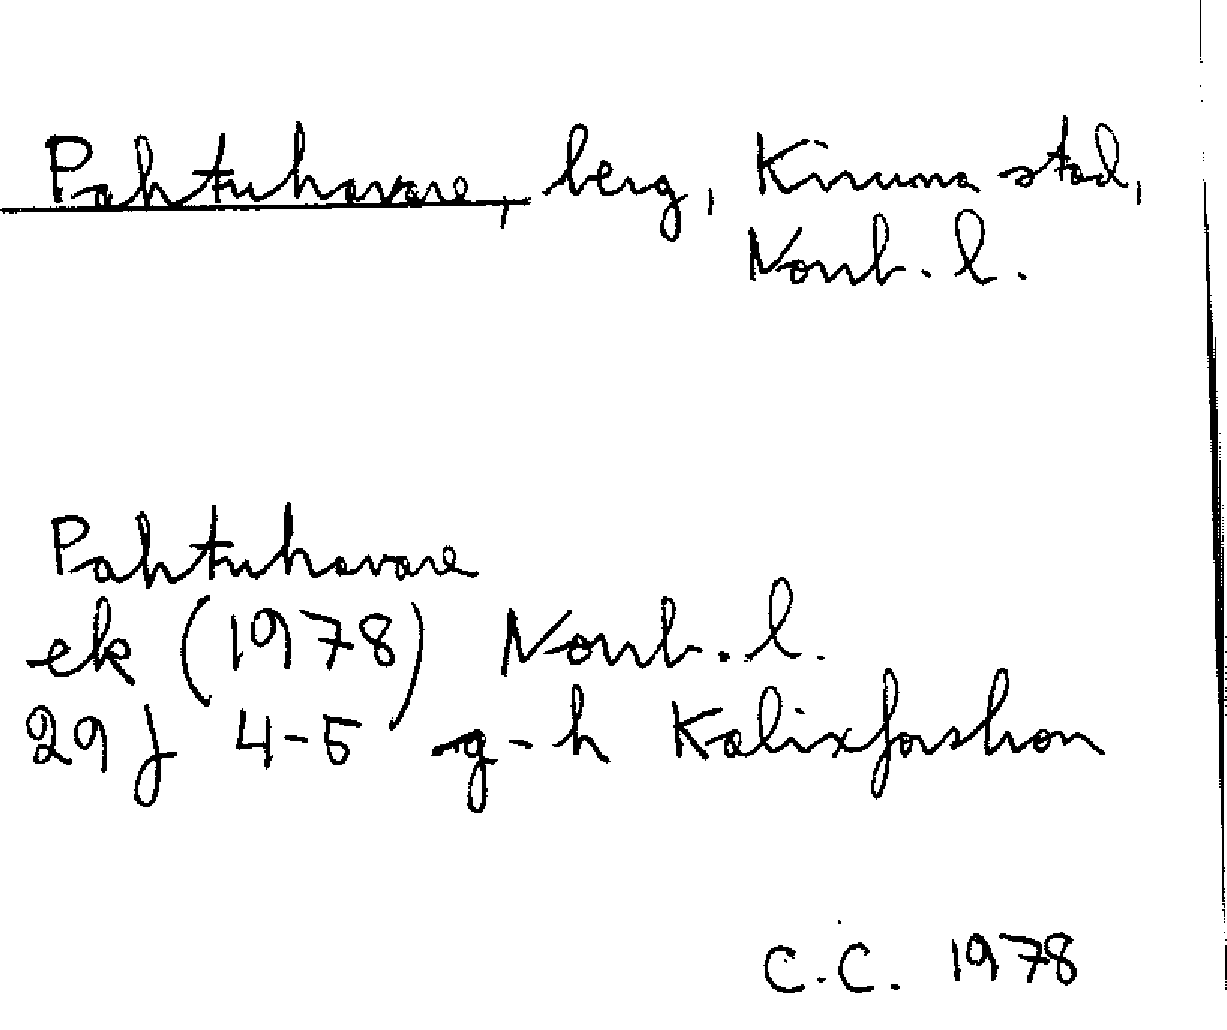 Pahtuhavare, berg, Kiruna stad,
Norrb. l.
Pahtuhavare
ek (1978) Norrb. l.
29 J 4-5 g-h Kalixforshon
C.C. 1978